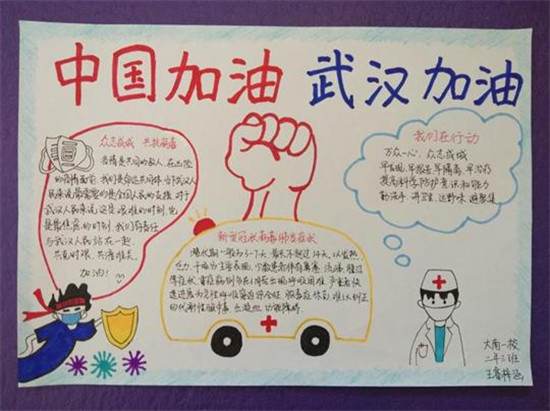 中国加油 武汉加油
众志成城 共抗病毒
疫情是共同的敌人,在凶险
的疫情面前,我们是命运共同体,当下武汉人
民来说最需要的是全国人民的支援,对于
武汉人来说这是艰难的时刻,也
是最焦虑的时刻,我们有责任
与武汉人民站在一起,
共克时艰、共渡难关,
加油!
我们在行动
万众一心,众志成城
早发现,早报告,早隔离,早治疗
提高科学防护意识和能力
勤洗手
新型冠状病毒肺炎症状
潜伏期一般为3-7天,最长不超过14天,以发热
乏力、干咳为主要表现,少数患者伴有鼻塞、流涕、腹泻
等症状,重症病例多在1周后出现呼吸困难,严重者快
速进展为急性呼吸窘迫综合征、脓毒症休克,难以纠正
的代谢性酸中毒,出凝血功能障碍。
大南一校
二年三班